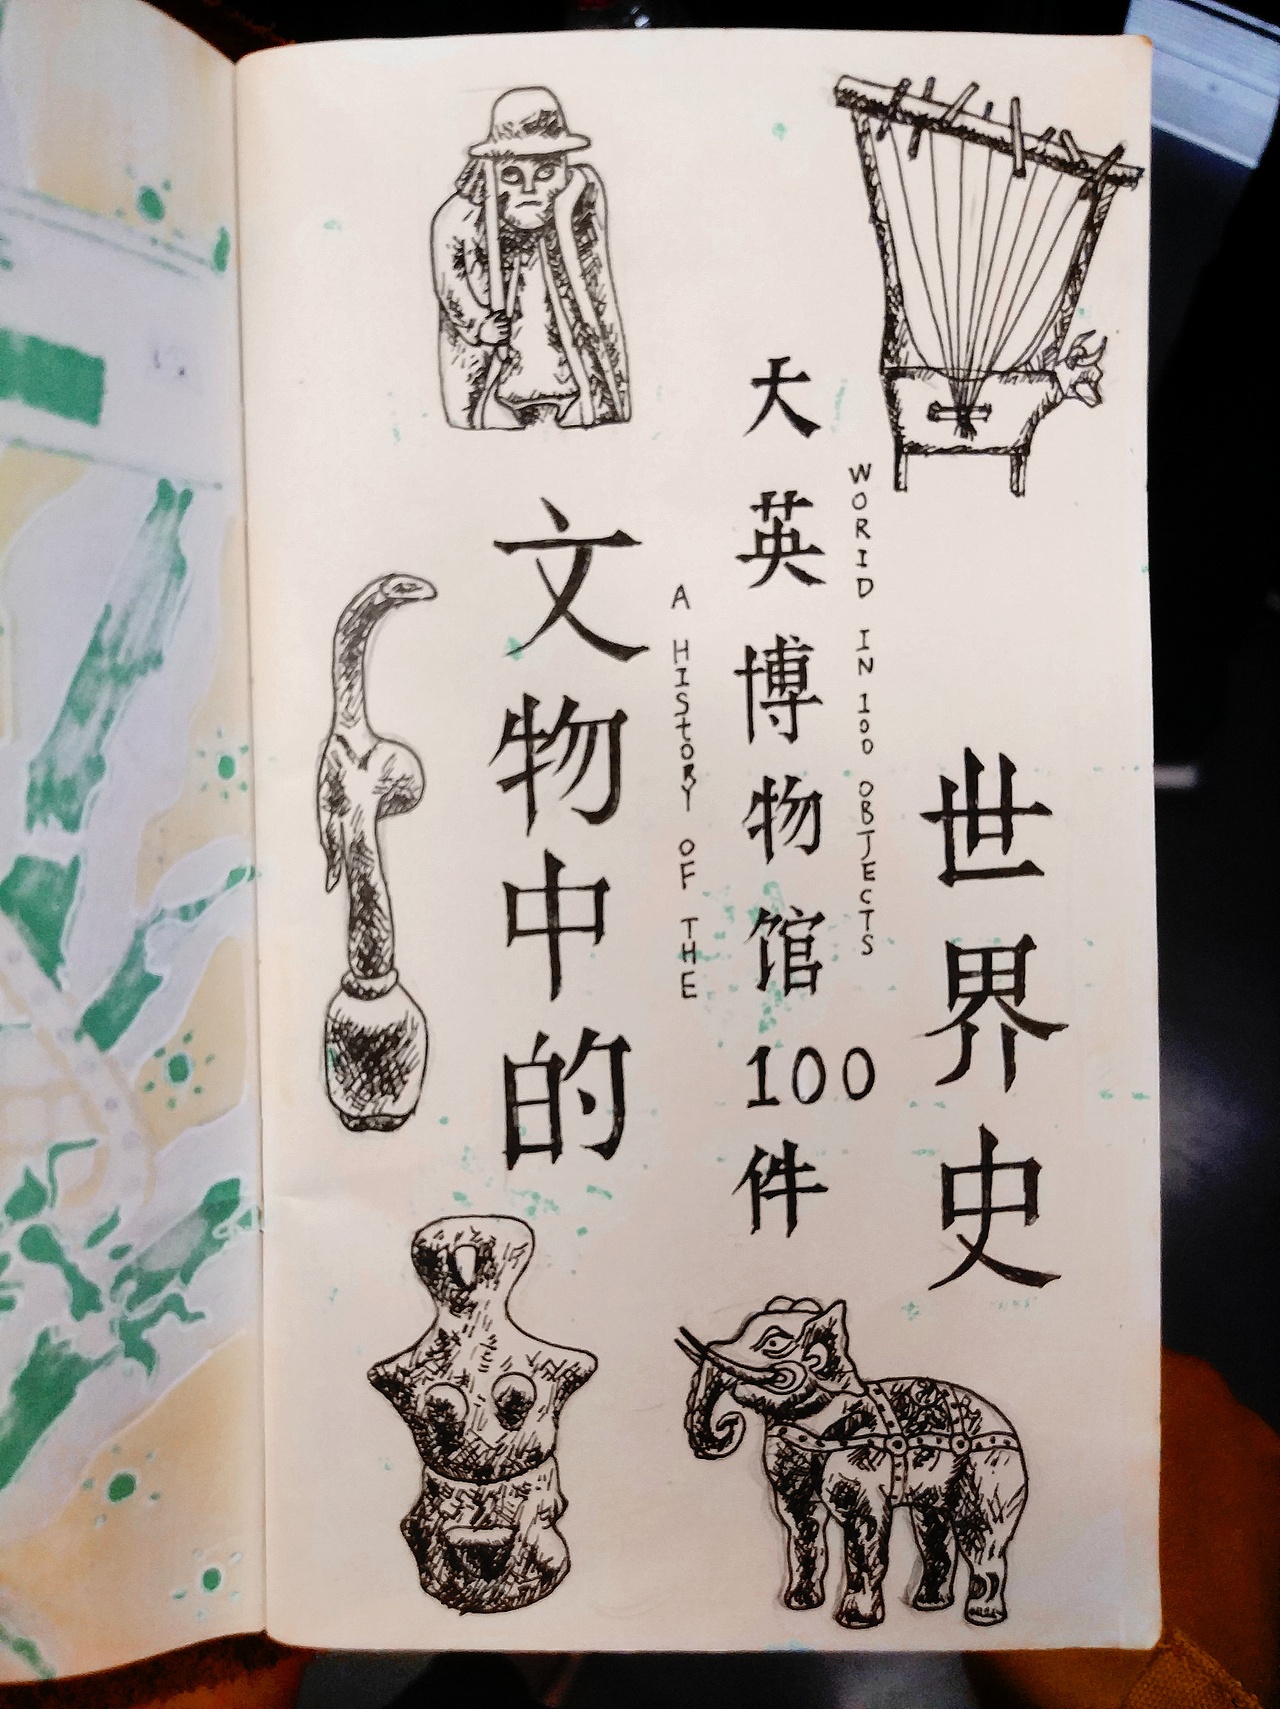 文物中的
A HIStORY OF THE
大英博物馆100件
WORID IN 100 OBJECTS
世界史